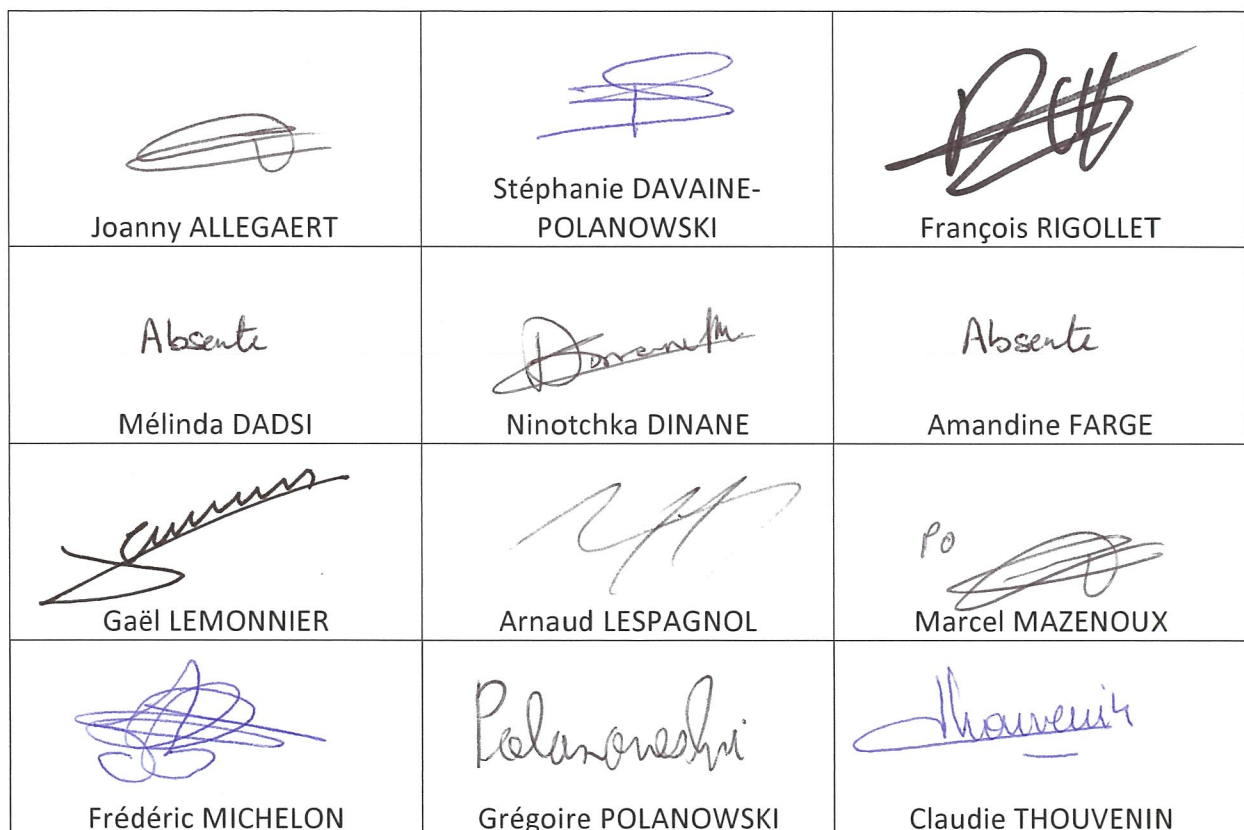 Joanny ALLEGAERT
Stéphanie DAVAINE-
POLANOWSKI
François RIGOLLET
Absente
Mélinda DADSI
Ninotchka DINANE
Absente
Amandine FARGE
Gaël LEMONNIER
Arnaud LESPAGNOL
PO
Marcel MAZENOUX
Frédéric MICHELON
Polanowski
Grégoire POLANOWSKI
Thouvenin
Claudie THOUVENIN